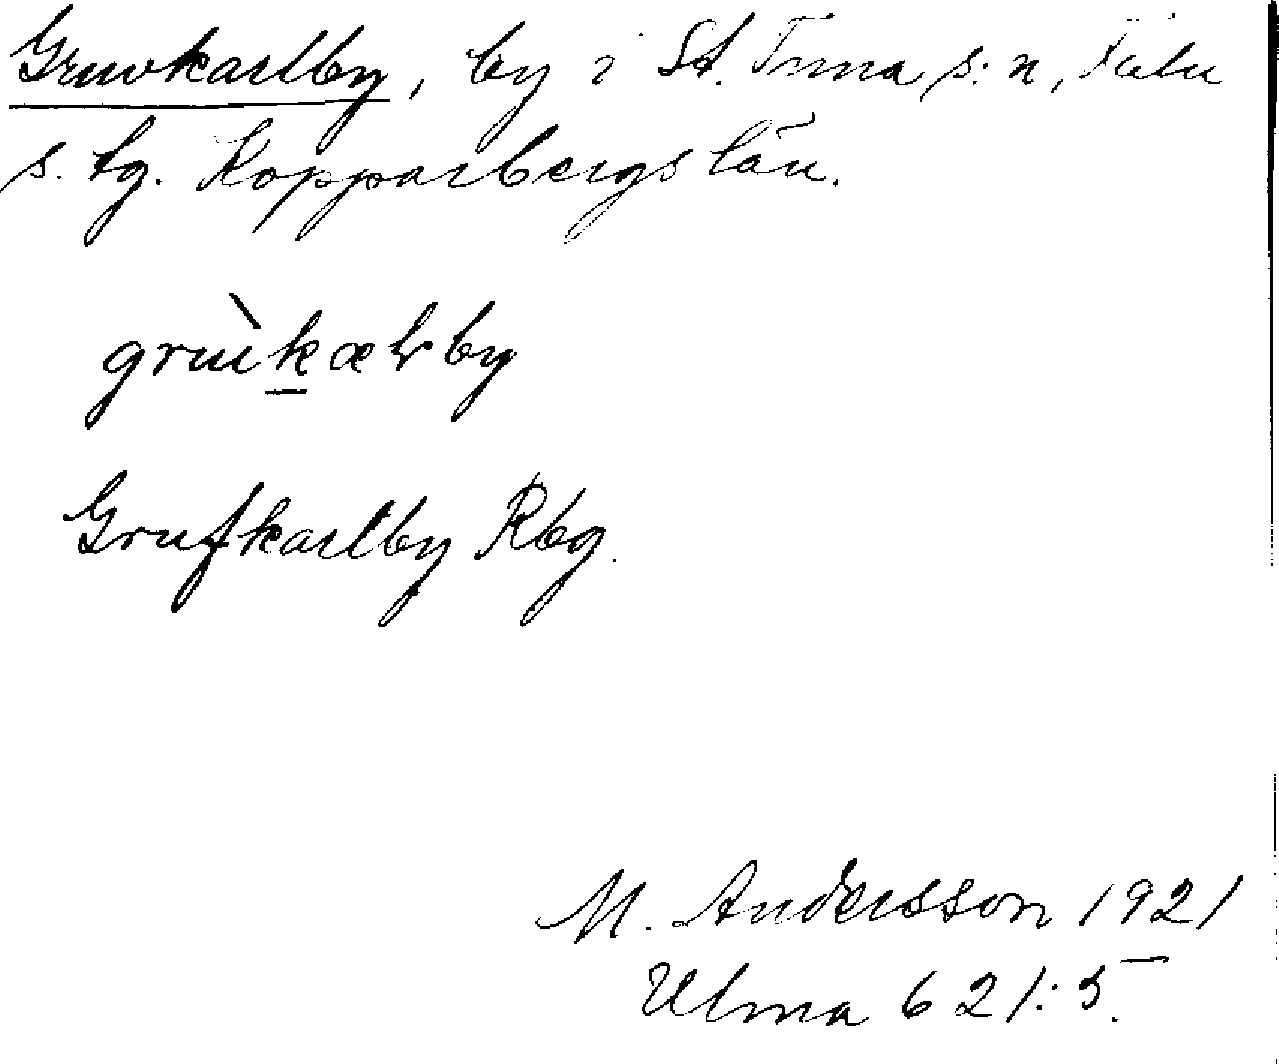 Gruvkarlby, by i St. Tuna s:n, Falu
s. tg. Kopparbergs län.
grùkæLby
Grufkarlby Rbg.
M. Andersson 1921
Ulma 621:5.